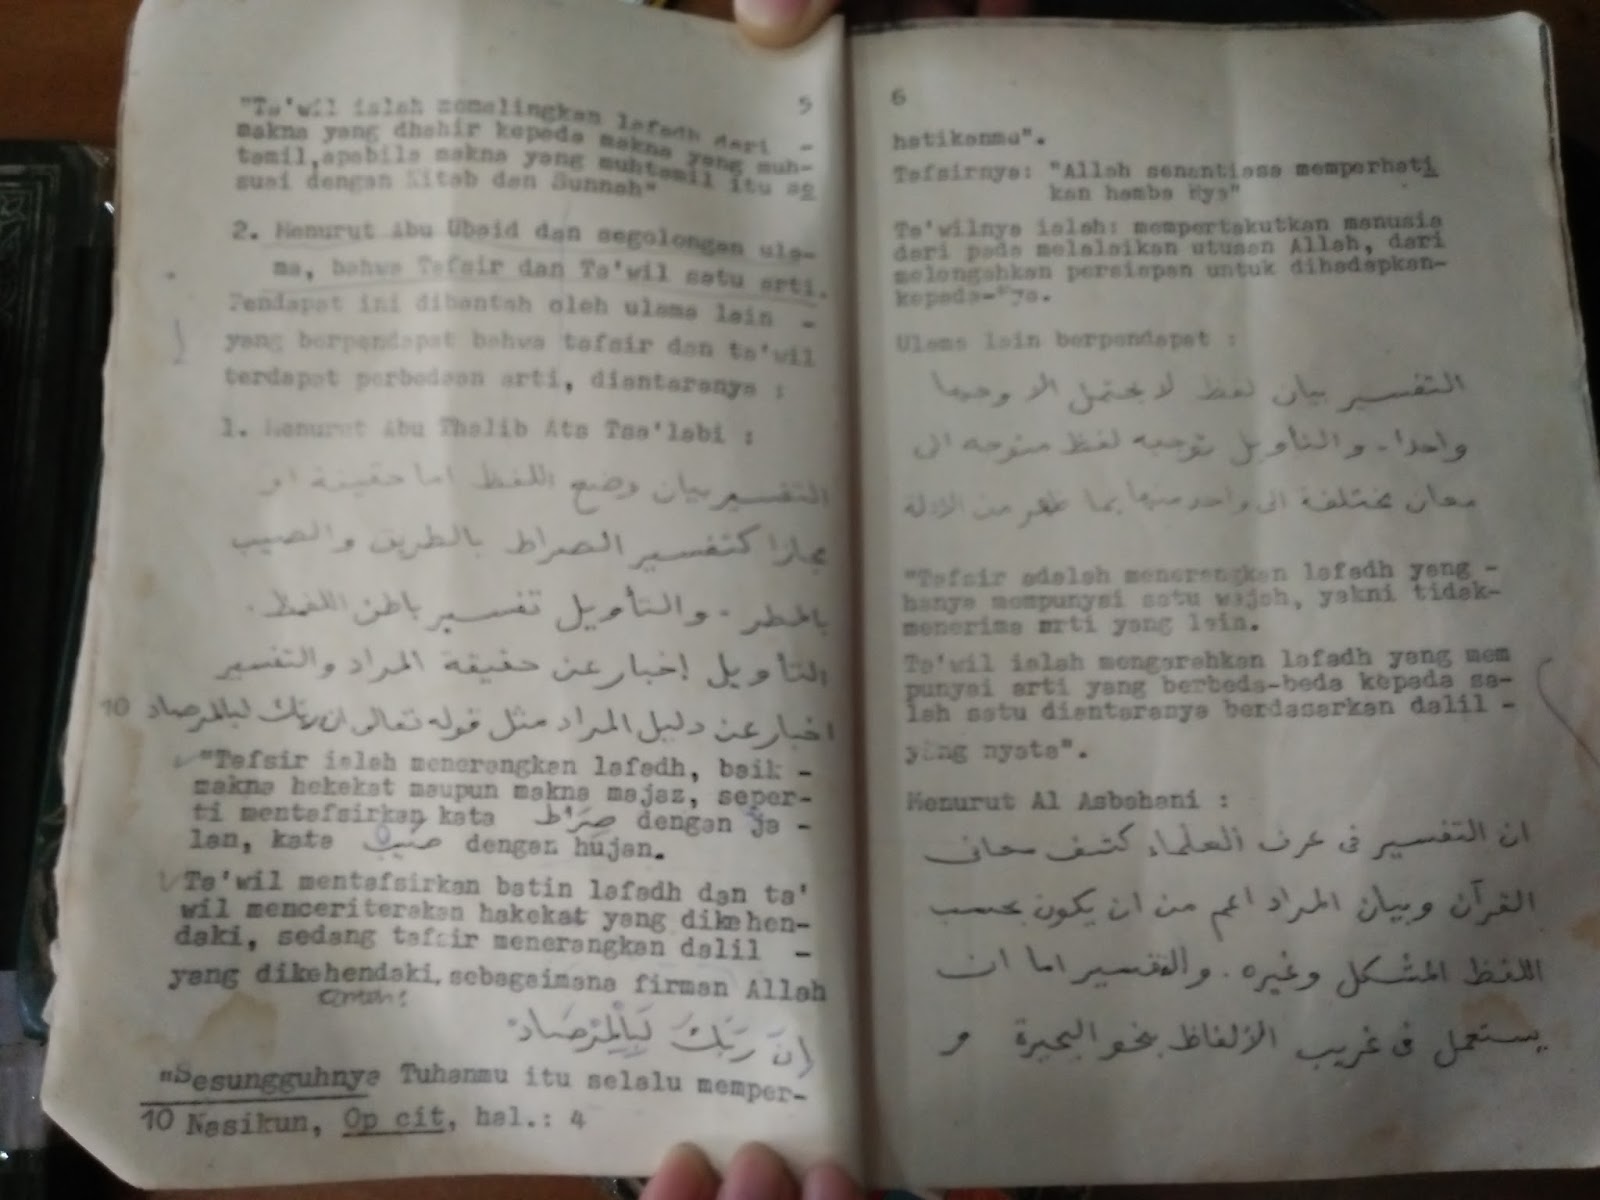 5
"Ta'wil ialah memalingkan lafadh dari -
makna yang dhahir kepada makna yang muh-
tamil,apabila makna yang muhtamil itu se
suai dengan Kitab dan Sunnah"
2. Menurut Abu Ubaid dan segolongan ula-
ma, bahwa Tafsir dan Ta'wil satu arti.
Pendapat ini dibantah oleh ulama lain -
yang berpendapat bahwa tafsir dan ta'wil
terdapat perbedaan arti, diantaranya :
1. Menurut Abu Thalib Ats Tsa'labi :
التفسير بيان وضع اللفظ اما حقيقة او
مجازا كتفسير الصراط بالطريق والصيب
بالمطر - والتأويل تفسير باطن اللفظ .
التأويل إخبار عن حقيقة المراد والتفسير
اخبار عن دليل المراد مثل قوله تعالى ان ربك لبالمرصاد 10
"Tafsir ialah menerangkan lafadh, baik -
makna hakekat maupun makna majaz, seper-
ti mentafsirkan kata صِرَاط dengan ja -
lan, kata صَيِّب dengan hujan.
Ta'wil mentafsirkan batin lafadh dan ta'
wil menceriterakan hakekat yang dikehen-
daki, sedang tafsir menerangkan dalil -
yang dikehendaki, sebagaimana firman Allah
Contoh:
إِنَّ رَبَّكَ لَبِالْمِرْصَادِ
"Sesungguhnya Tuhanmu itu selalu memper-
10 Nasikun, Op cit, hal.: 4
6
hatikanmu".
Tafsirnya: "Allah senantiasa memperhati
kan hamba Nya"
Ta'wilnya ialah: mempertakutkan manusia
dari pada melalaikan utusan Allah, dari
melengahkan persiapan untuk dihadapkan-
kepada-Nya.
Ulama lain berpendapat :
التفسير بيان لفظ لا يحتمل الا وجها
واحدا - والتأويل توجيه لفظ متوجه الى
معان مختلفة الى واحد منها بما ظهر من الادلة
"Tafsir adalah menerangkan lafadh yang -
hanya mempunyai satu wajah, yakni tidak-
menerima arti yang lain.
Ta'wil ialah mengarahkan lafadh yang mem
punyai arti yang berbeda-beda kepada sa-
lah satu diantaranya berdasarkan dalil -
yang nyata".
Menurut Al Asbahani :
ان التفسير فى عرف العلماء كشف معانى
القرآن وبيان المراد اعم من ان يكون بحسب
اللفظ المشكل وغيره . والتفسير اما ان
يستعمل فى غريب الألفاظ نحو البحيرة و